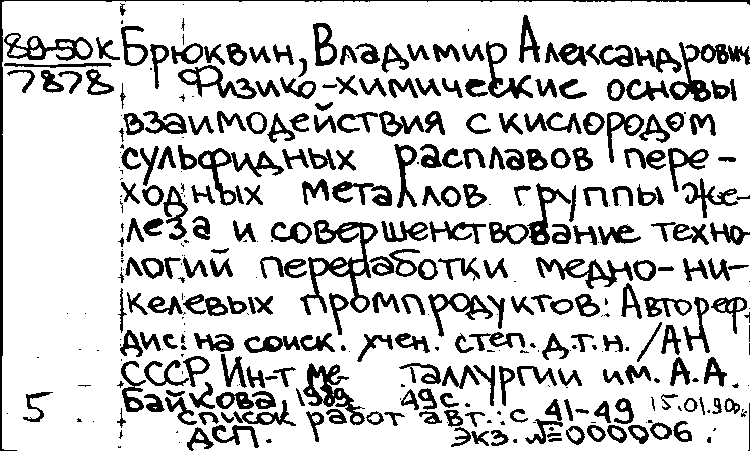 89-50К
7878
Брюквин, Владимир Александрович
Физико-химические основы
взаимодействия с кислородом
сульфидных расплавов пере-
ходных металлов группы же-
леза и совершенствование техно-
логий переработки медно-ни-
келевых промпродуктов: Автореф.
дис. на соиск. учен. степ. д.т.н. / АН
СССР, Ин-т ме- таллургии им. А.А.
Байкова, 1989. 49 с.
5 список работ авт.: с. 41-49 15.01.90г.
ДСП. экз. №000006.